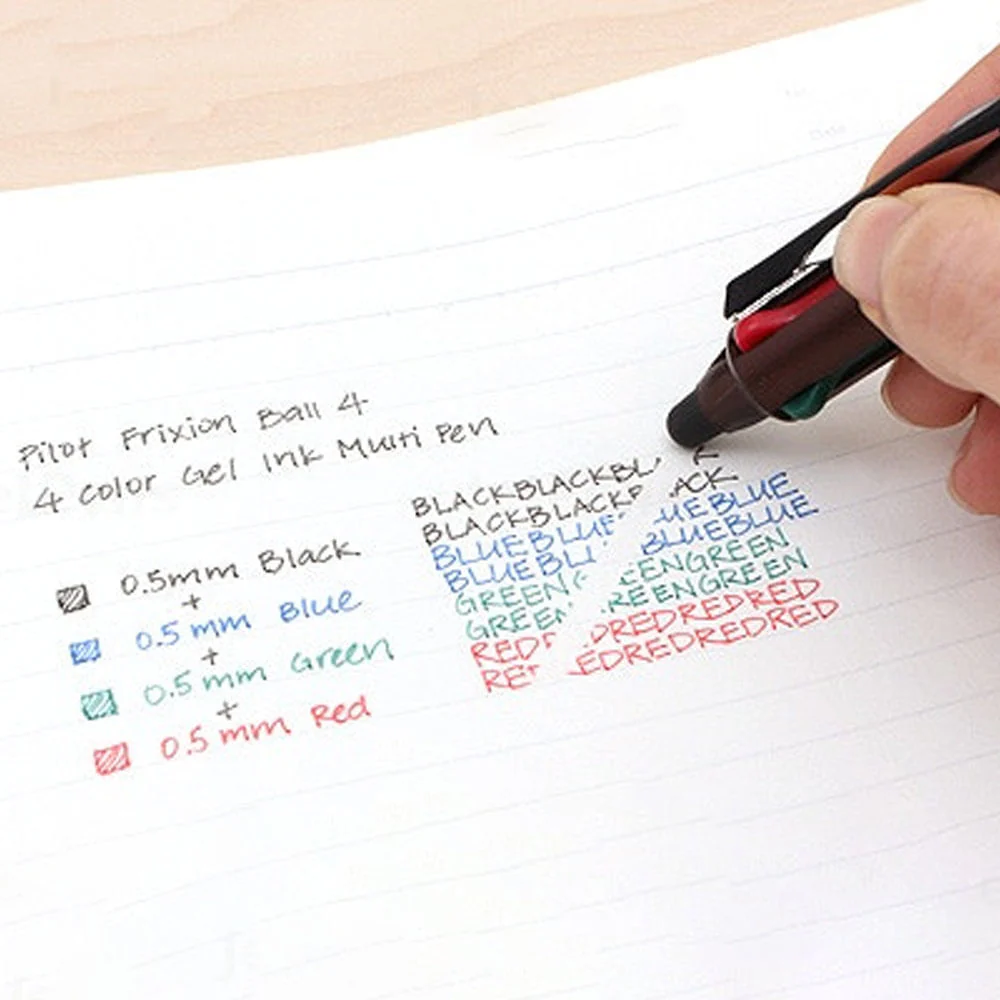 Pilot Frixion Ball 4
4 Color Gel Ink Multi Pen
0.5mm Black
+
0.5 mm Blue
+
0.5 mm Green
+
0.5 mm Red
BLACKBLACKBL K
BLACKBLACKB ACK
BLUEBLUE UEBLUE
BLUEBLU BLUEBLUE
GREENG EENGREEN
GREEN REENGREEN
REDR DREDREDRED
RE EDREDREDRED
Date